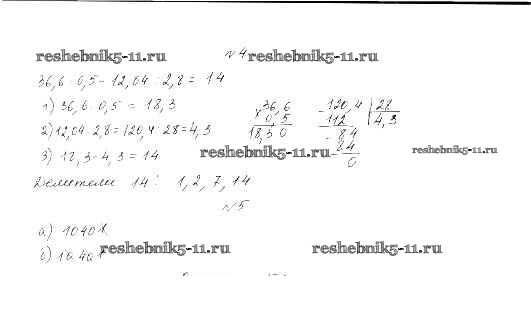 reshebnik5-11.ru №4 reshebnik5-11.ru
36,6 · 0,5 - 12,04 : 2,8 = 14
1) 36,6 · 0,5 = 18,3
36,6
× 0,5
18,30
- 120,4 | 28
112 4,3
- 84
84
0
2) 12,04 : 2,8 = 120,4 : 28 = 4,3
3) 18,3 - 4,3 = 14
reshebnik5-11.ru
reshebnik5-11.ru
Делители 14: 1, 2, 7, 14
№5
а) 1040
б)
reshebnik5-11.ru
reshebnik5-11.ru